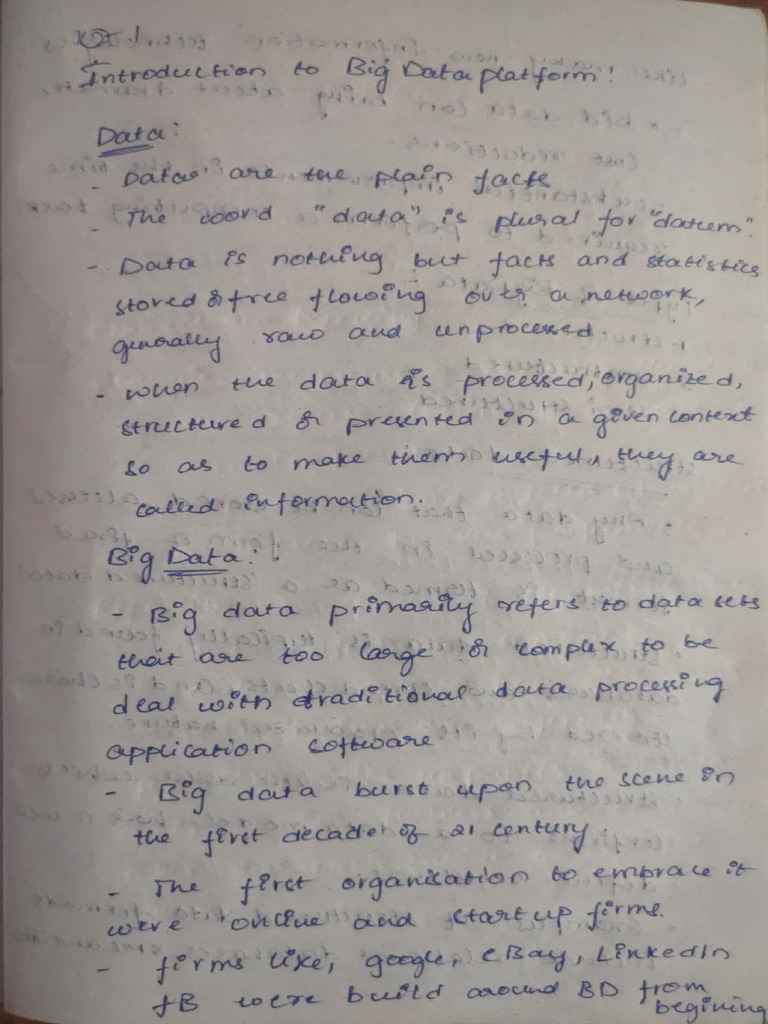 Introduction to Big Data platform:
Data:
- Data are the plain facts
- The word "data" is plural for "datum".
- Data is nothing but facts and statistics
stored or free flowing over a network,
generally raw and unprocessed.
- when the data is processed, organized,
structured or presented in a given context
so as to make them useful, they are
called information.
Big Data:
- Big data primarily refers to data sets
that are too large or complex to be
deal with traditional data processing
application software
- Big data burst upon the scene in
the first decade of 21 century.
- The first organisation to embrace it
were online and startup firms.
- firms like, google, eBay, LinkedIn
fB were build around BD from
begining